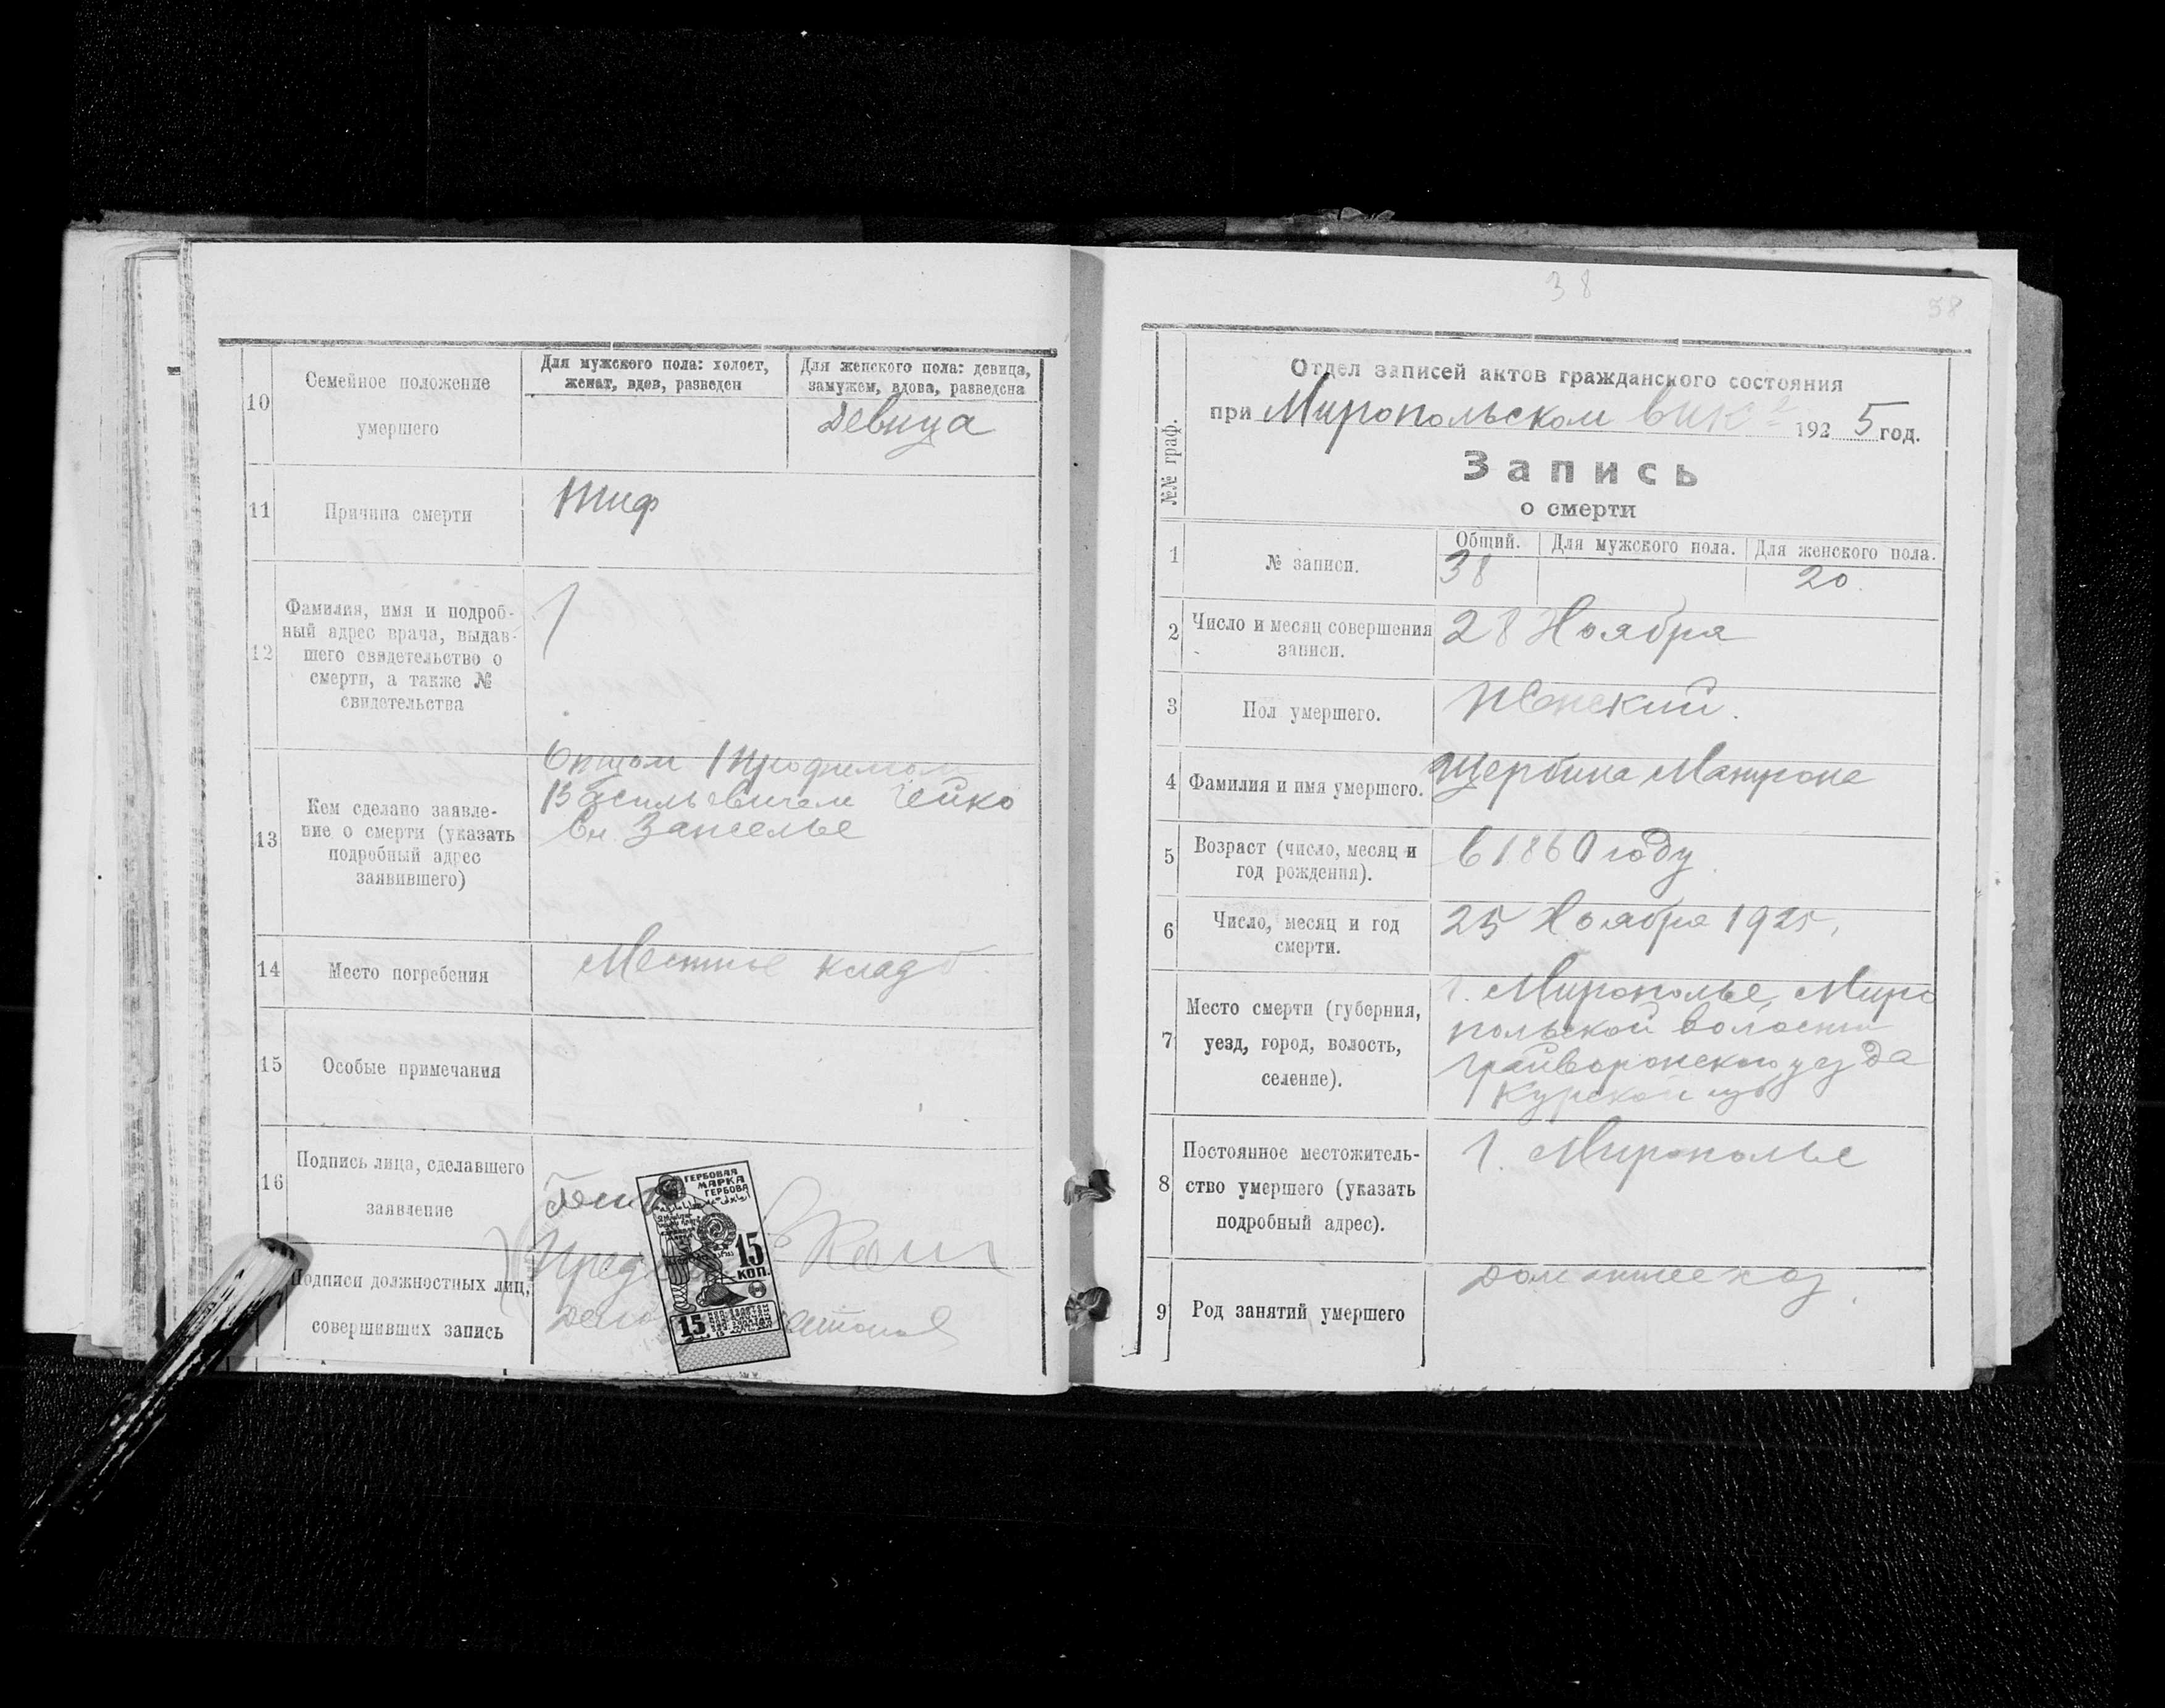 10
Семейное положение
умершего
Для мужского пола: холост,
женат, вдов, разведен
Для женского пола: девица,
замужем, вдова, разведена
Девица
11
Причина смерти
тиф
12
Фамилия, имя и подроб-
ный адрес врача, выдав-
шего свидетельство о
смерти, а также №
свидетельства
13
Кем сделано заявле-
ние о смерти (указать
подробный адрес
заявившего)
Васильевичем Гейко
14
Место погребения
Местное клад
15
Особые примечания
16
Подпись лица, сделавшего
заявление
Подписи должностных лиц,
совершивших запись
ГЕРБОВАЯ
МАРКА
ГЕРБОВА
15
КОП.
15
38
38
№№ граф.
Отдел записей актов гражданского состояния
при Миропольском вик 1925 год.
Запись
о смерти
1
№ записи.
Общий. Для мужского пола. Для женского пола.
38 20.
2
Число и месяц совершения
записи.
28 Ноября
3
Пол умершего.
Женский.
4
Фамилия и имя умершего.
Щербина Матрона
5
Возраст (число, месяц и
год рождения).
в 1860 году
6
Число, месяц и год
смерти.
25 Ноября 1925,
7
Место смерти (губерния,
уезд, город, волость,
селение).
г. Мирополье, Миро
польской волости
Грайворонского уезда
Курской губ
8
Постоянное местожитель-
ство умершего (указать
подробный адрес).
г. Мирополье
9
Род занятий умершего